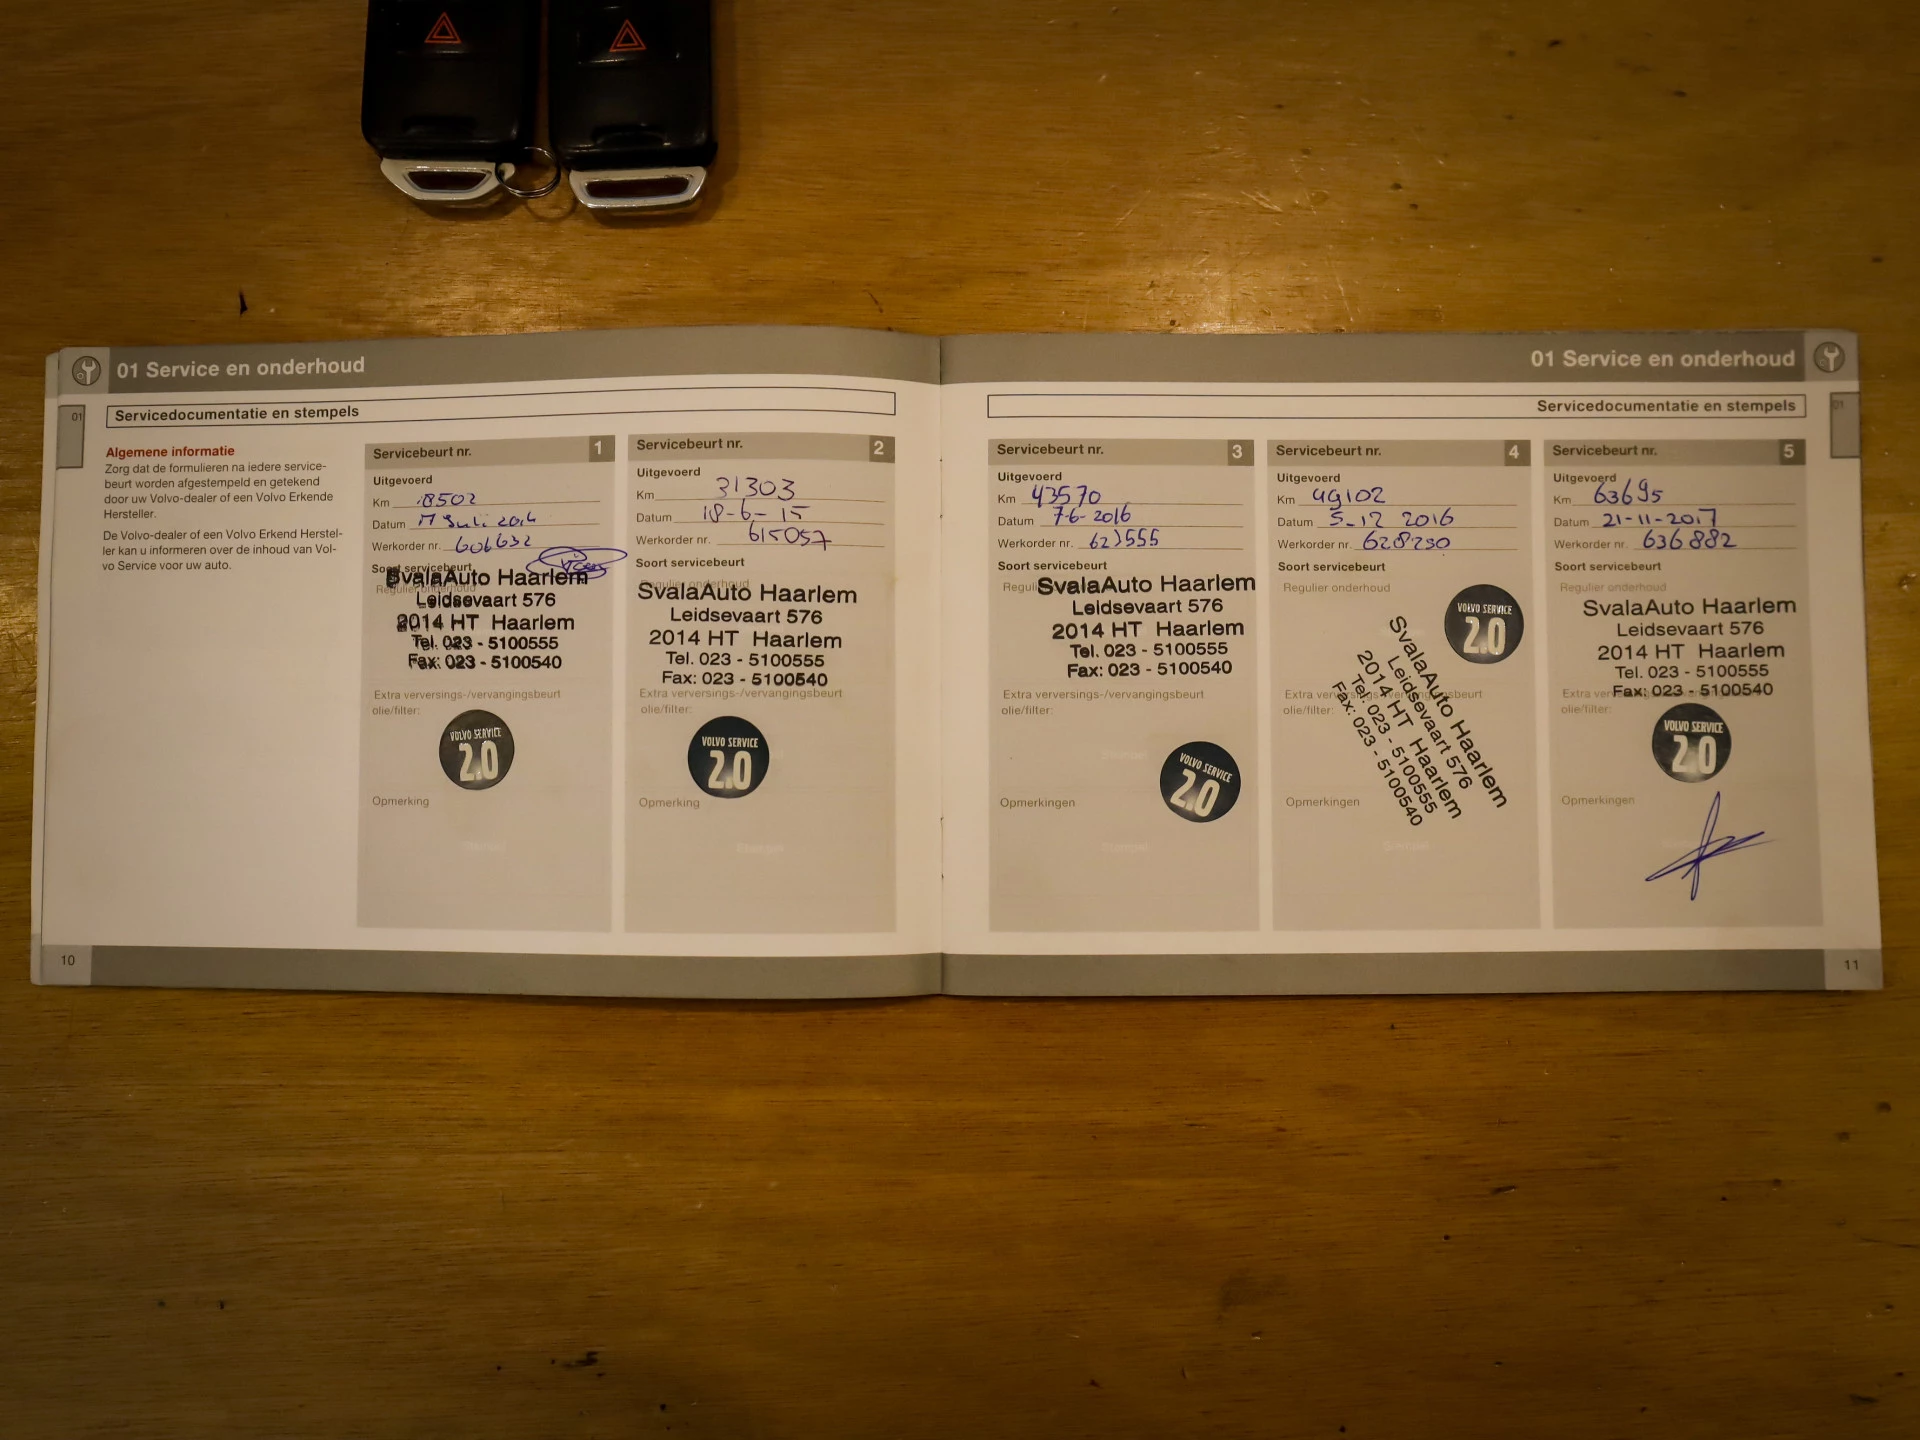 01 Service en onderhoud
01
Servicedocumentatie en stempels
Algemene informatie
Zorg dat de formulieren na iedere service-
beurt worden afgestempeld en getekend
door uw Volvo-dealer of een Volvo Erkende
Hersteller.
De Volvo-dealer of een Volvo Erkend Herstel-
ler kan u informeren over de inhoud van Vol-
vo Service voor uw auto.
Servicebeurt nr. 1
Uitgevoerd
Km 18502
Datum 17 Juli 2014
Werkorder nr. 606632
Soort servicebeurt
Regulier onderhoud
SvalaAuto Haarlem
Leidsevaart 576
2014 HT Haarlem
Tel. 023 - 5100555
Fax: 023 - 5100540
Extra verversings-/vervangingsbeurt
olie/filter:
VOLVO SERVICE
2.0
Opmerking
Stempel
Servicebeurt nr. 2
Uitgevoerd
Km 31303
Datum 18-6-15
Werkorder nr. 615057
Soort servicebeurt
Regulier onderhoud
SvalaAuto Haarlem
Leidsevaart 576
2014 HT Haarlem
Tel. 023 - 5100555
Fax: 023 - 5100540
Extra verversings-/vervangingsbeurt
olie/filter:
VOLVO SERVICE
2.0
Opmerking
Stempel
10
01 Service en onderhoud
01
Servicedocumentatie en stempels
Servicebeurt nr. 3
Uitgevoerd
Km 43570
Datum 7-6-2016
Werkorder nr.
Soort servicebeurt
SvalaAuto Haarlem
Leidsevaart 576
2014 HT Haarlem
Tel. 023 - 5100555
Fax: 023 - 5100540
Extra verversings-/vervangingsbeurt
olie/filter:
VOLVO SERVICE
2.0
Opmerkingen
Stempel
Servicebeurt nr. 4
Uitgevoerd
Km 49102
Datum 5-12 2016
Werkorder nr. 628250
Soort servicebeurt
Regulier onderhoud
VOLVO SERVICE
2.0
SvalaAuto Haarlem
Leidsevaart 576
2014 HT Haarlem
Tel. 023 - 5100555
Fax: 023 - 5100540
Extra verversings-/vervangingsbeurt
olie/filter:
Opmerkingen
Stempel
Servicebeurt nr. 5
Uitgevoerd
Km 63695
Datum 21-11-2017
Werkorder nr. 636882
Soort servicebeurt
Regulier onderhoud
SvalaAuto Haarlem
Leidsevaart 576
2014 HT Haarlem
Tel. 023 - 5100555
Fax: 023 - 5100540
olie/filter:
VOLVO SERVICE
2.0
Opmerkingen
11